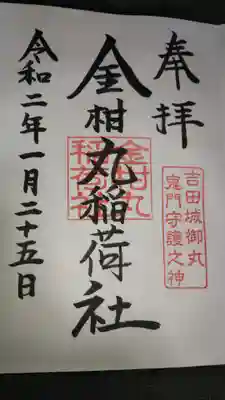 奉拝
吉田城御丸
鬼門守護之神
金柑丸稲荷社
金柑丸
稲荷社
令和二年一月二十五日